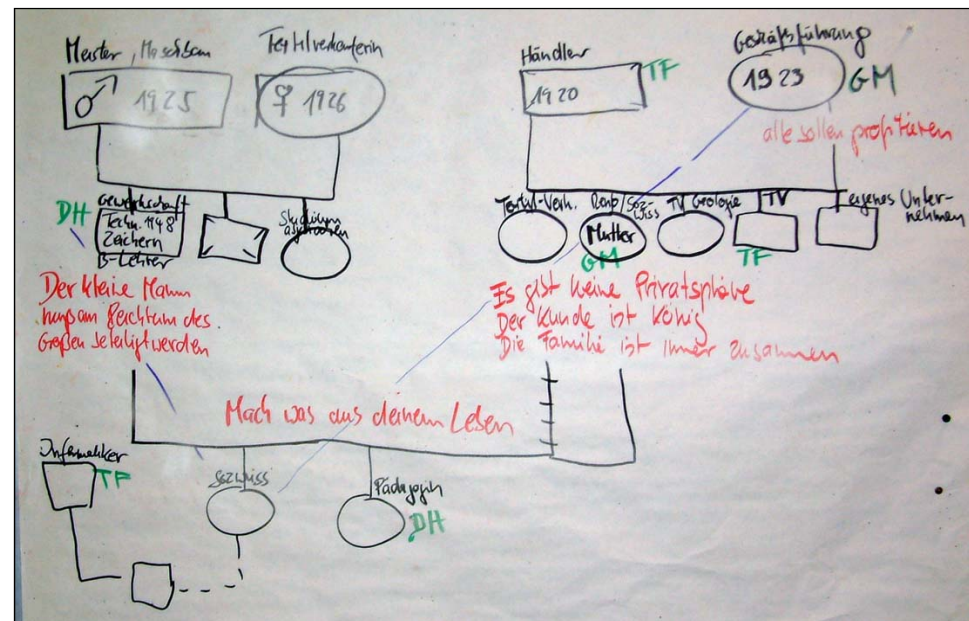 Meister, Maschbau
♂ 1925
Textilverkäuferin
♀ 1926
Händler
TF
1920
Geschäftsführung
1923
GM
alle sollen profitieren
DH
Gewerkschaft
Techn. 1948
Zeichern
B-Lehrer
Studium
Textil-Verk.
Soz-
wiss
Mutter
GM
TV
Geologie
TV
TF
eigenes Unter-
nehmen
Der kleine Mann
muß am Reichtum des
Großen beteiligt werden
Es gibt keine Privatsphäre
Der Kunde ist König
Die Familie ist immer zusammen
Mach was aus deinem Leben
Informatiker
TF
Sozwiss
Pädagogin
DH